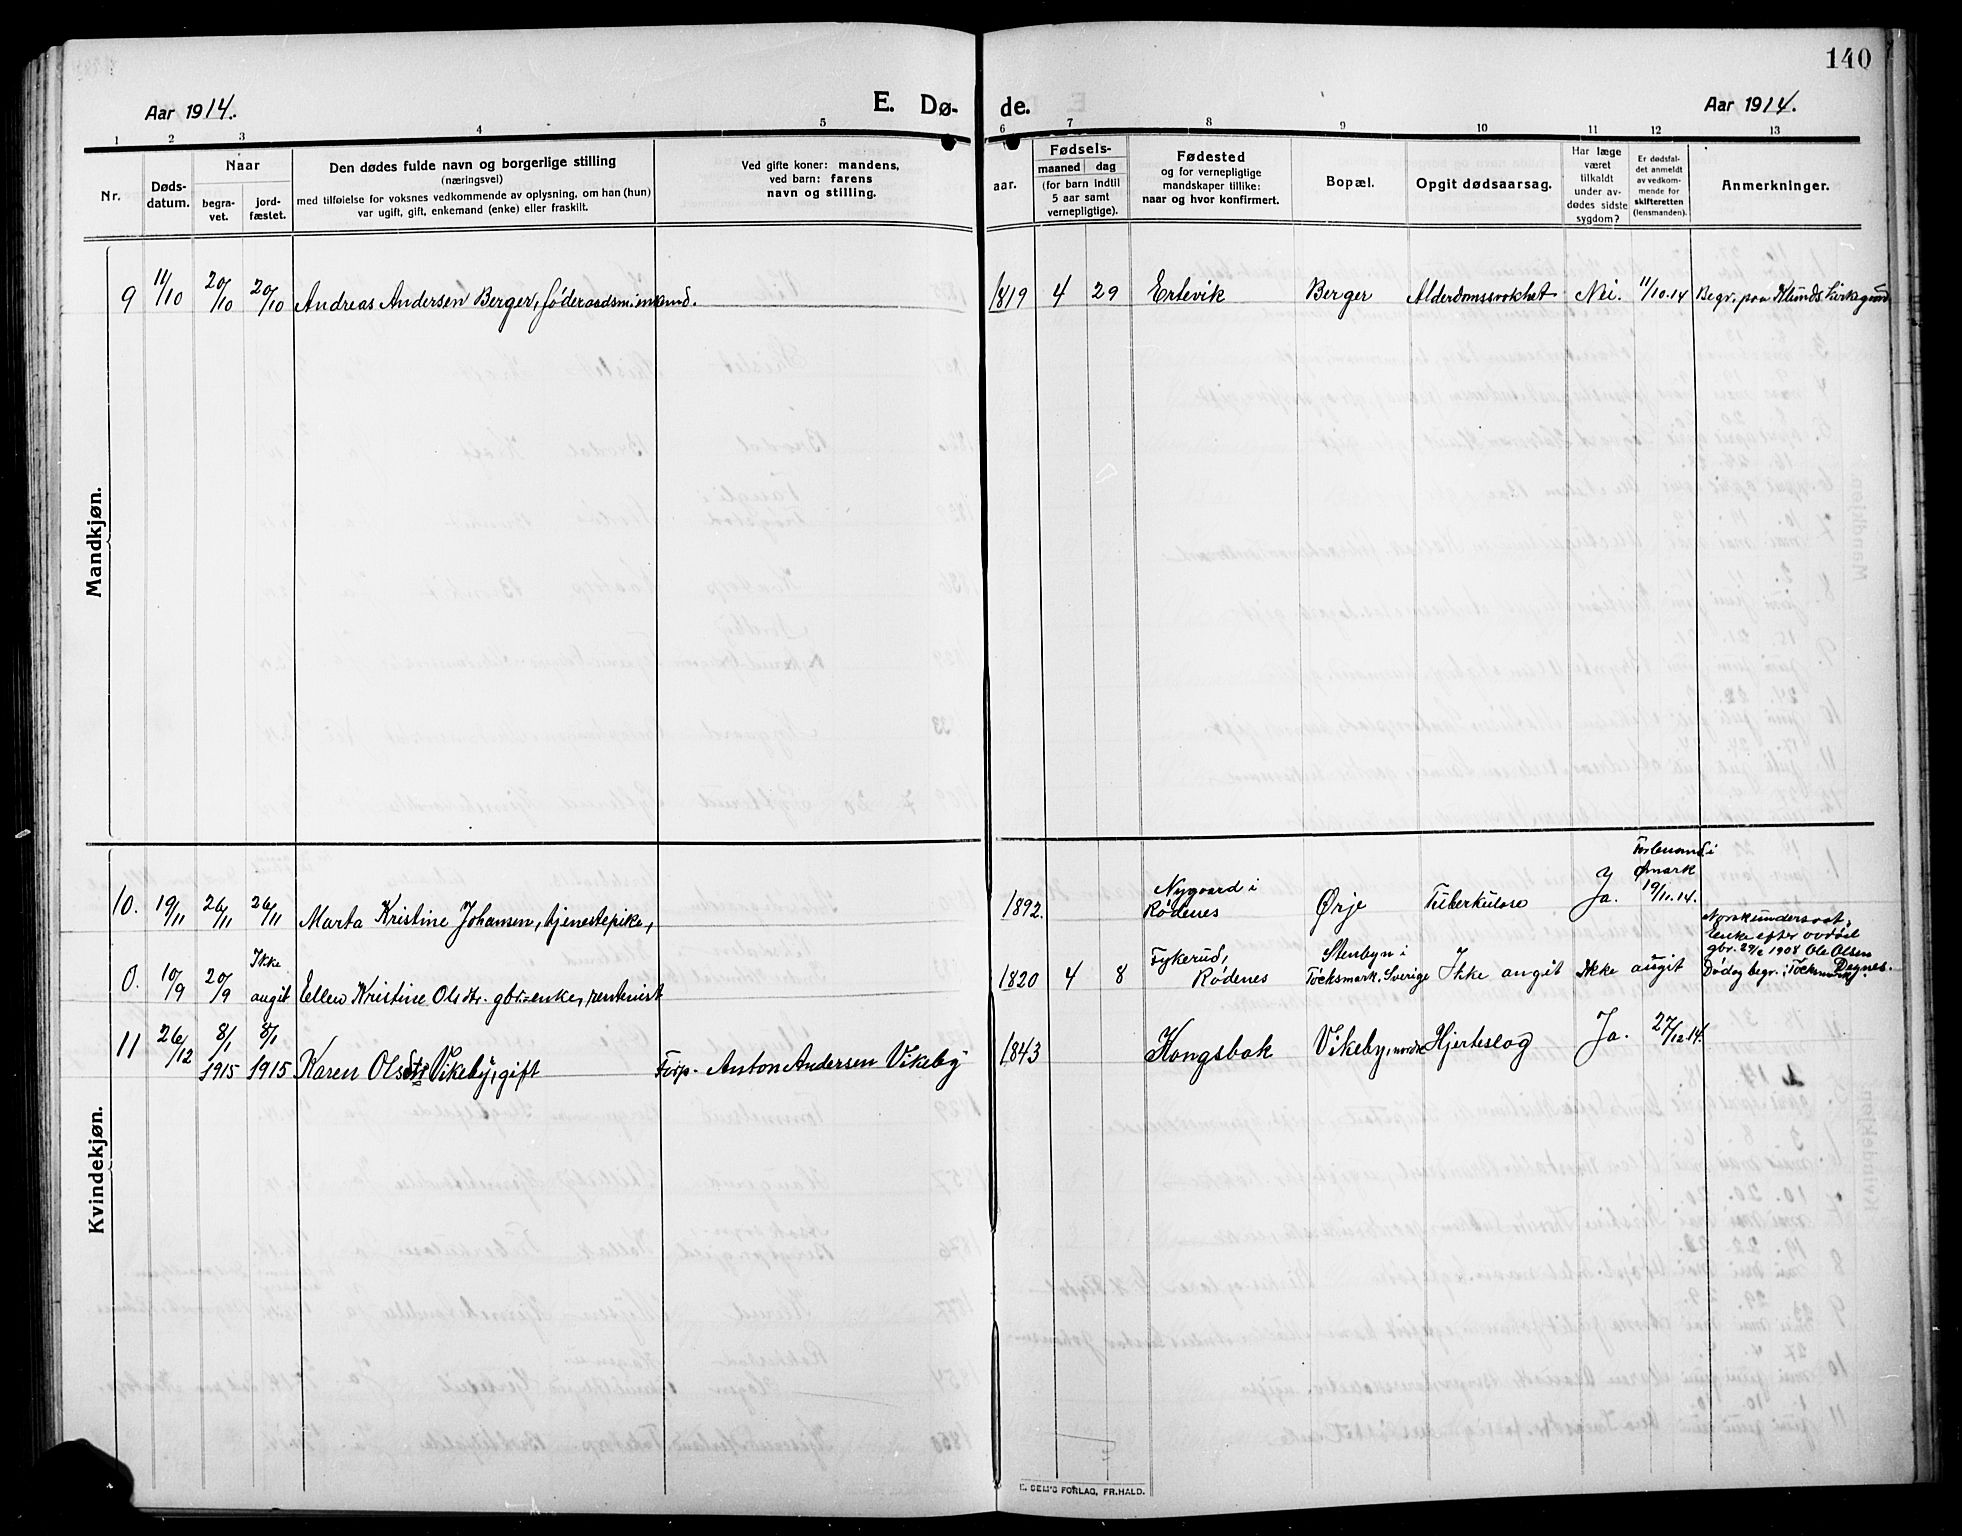 140
Aar 1914.
E. Dø-
de.
Aar 1914.
1 2 3 4 5
6 7 8 9 10 11 12 13
Nr.
Døds-
datum.
Naar
begra-
vet.
jord-
fæstet.
Den dødes fulde navn og borgerlige stilling
(næringsvei)
med tilføielse for voksnes vedkommende av oplysning, om han (hun)
var ugift, gift, enkemand (enke) eller fraskilt.
Ved gifte koner: mandens,
ved barn: farens
navn og stilling.
aar.
Fødsels-
maaned dag
(for barn indtil
5 aar samt
vernepligtige).
Fødested
og for vernepligtige
mandskaper tillike:
naar og hvor konfirmert.
Bopæl.
Opgit dødsaarsag.
Har læge
været
tilkaldt
under av-
dødes sidste
sygdom?
Er dødsfal-
det anmeldt
av vedkom-
mende for
skifteretten
(lensmanden).
Anmerkninger.
Mandkjøn.
9 11/10 20/10 20/10 Andreas Andersen Berger, føderaadsmand.
1819 4 29 Ertevik Berger Alderdomssvakhet Nei. 11/10.14 Begr. paa Klunds kirkegaard
Kvindekjøn.
10. 19/11 26/11 26/11 Marta Kristine Johansen, tjenestepike,
1892. Nygaard i
Rødenes Ørje Tuberkulose Ja.
Øymark
19/11.14.
0. 10/9 20/9 Ikke
angit Ellen Kristine Olsdtr. gbr.-enke, rentenist
1820 4 8 Fykerud,
Rødenes Stenbyn i
Töcksmark. Sverige Ikke angit Ikke angit
Norsk undersaat,
Enke efter avdød
gbr. 29/6 1908 Ole Olsen
Degnes.
Død og begr. i Töcksmark
11 26/12 8/1
1915 8/1
1915 Karen Olsdtr Vikeby, gift Forp. Anton Andersen Vikeby
1843 Kongsbak Vikeby, nordre Hjerteslag Ja. 27/12.14.
E. SEM'S FORLAG, FR.HALD.